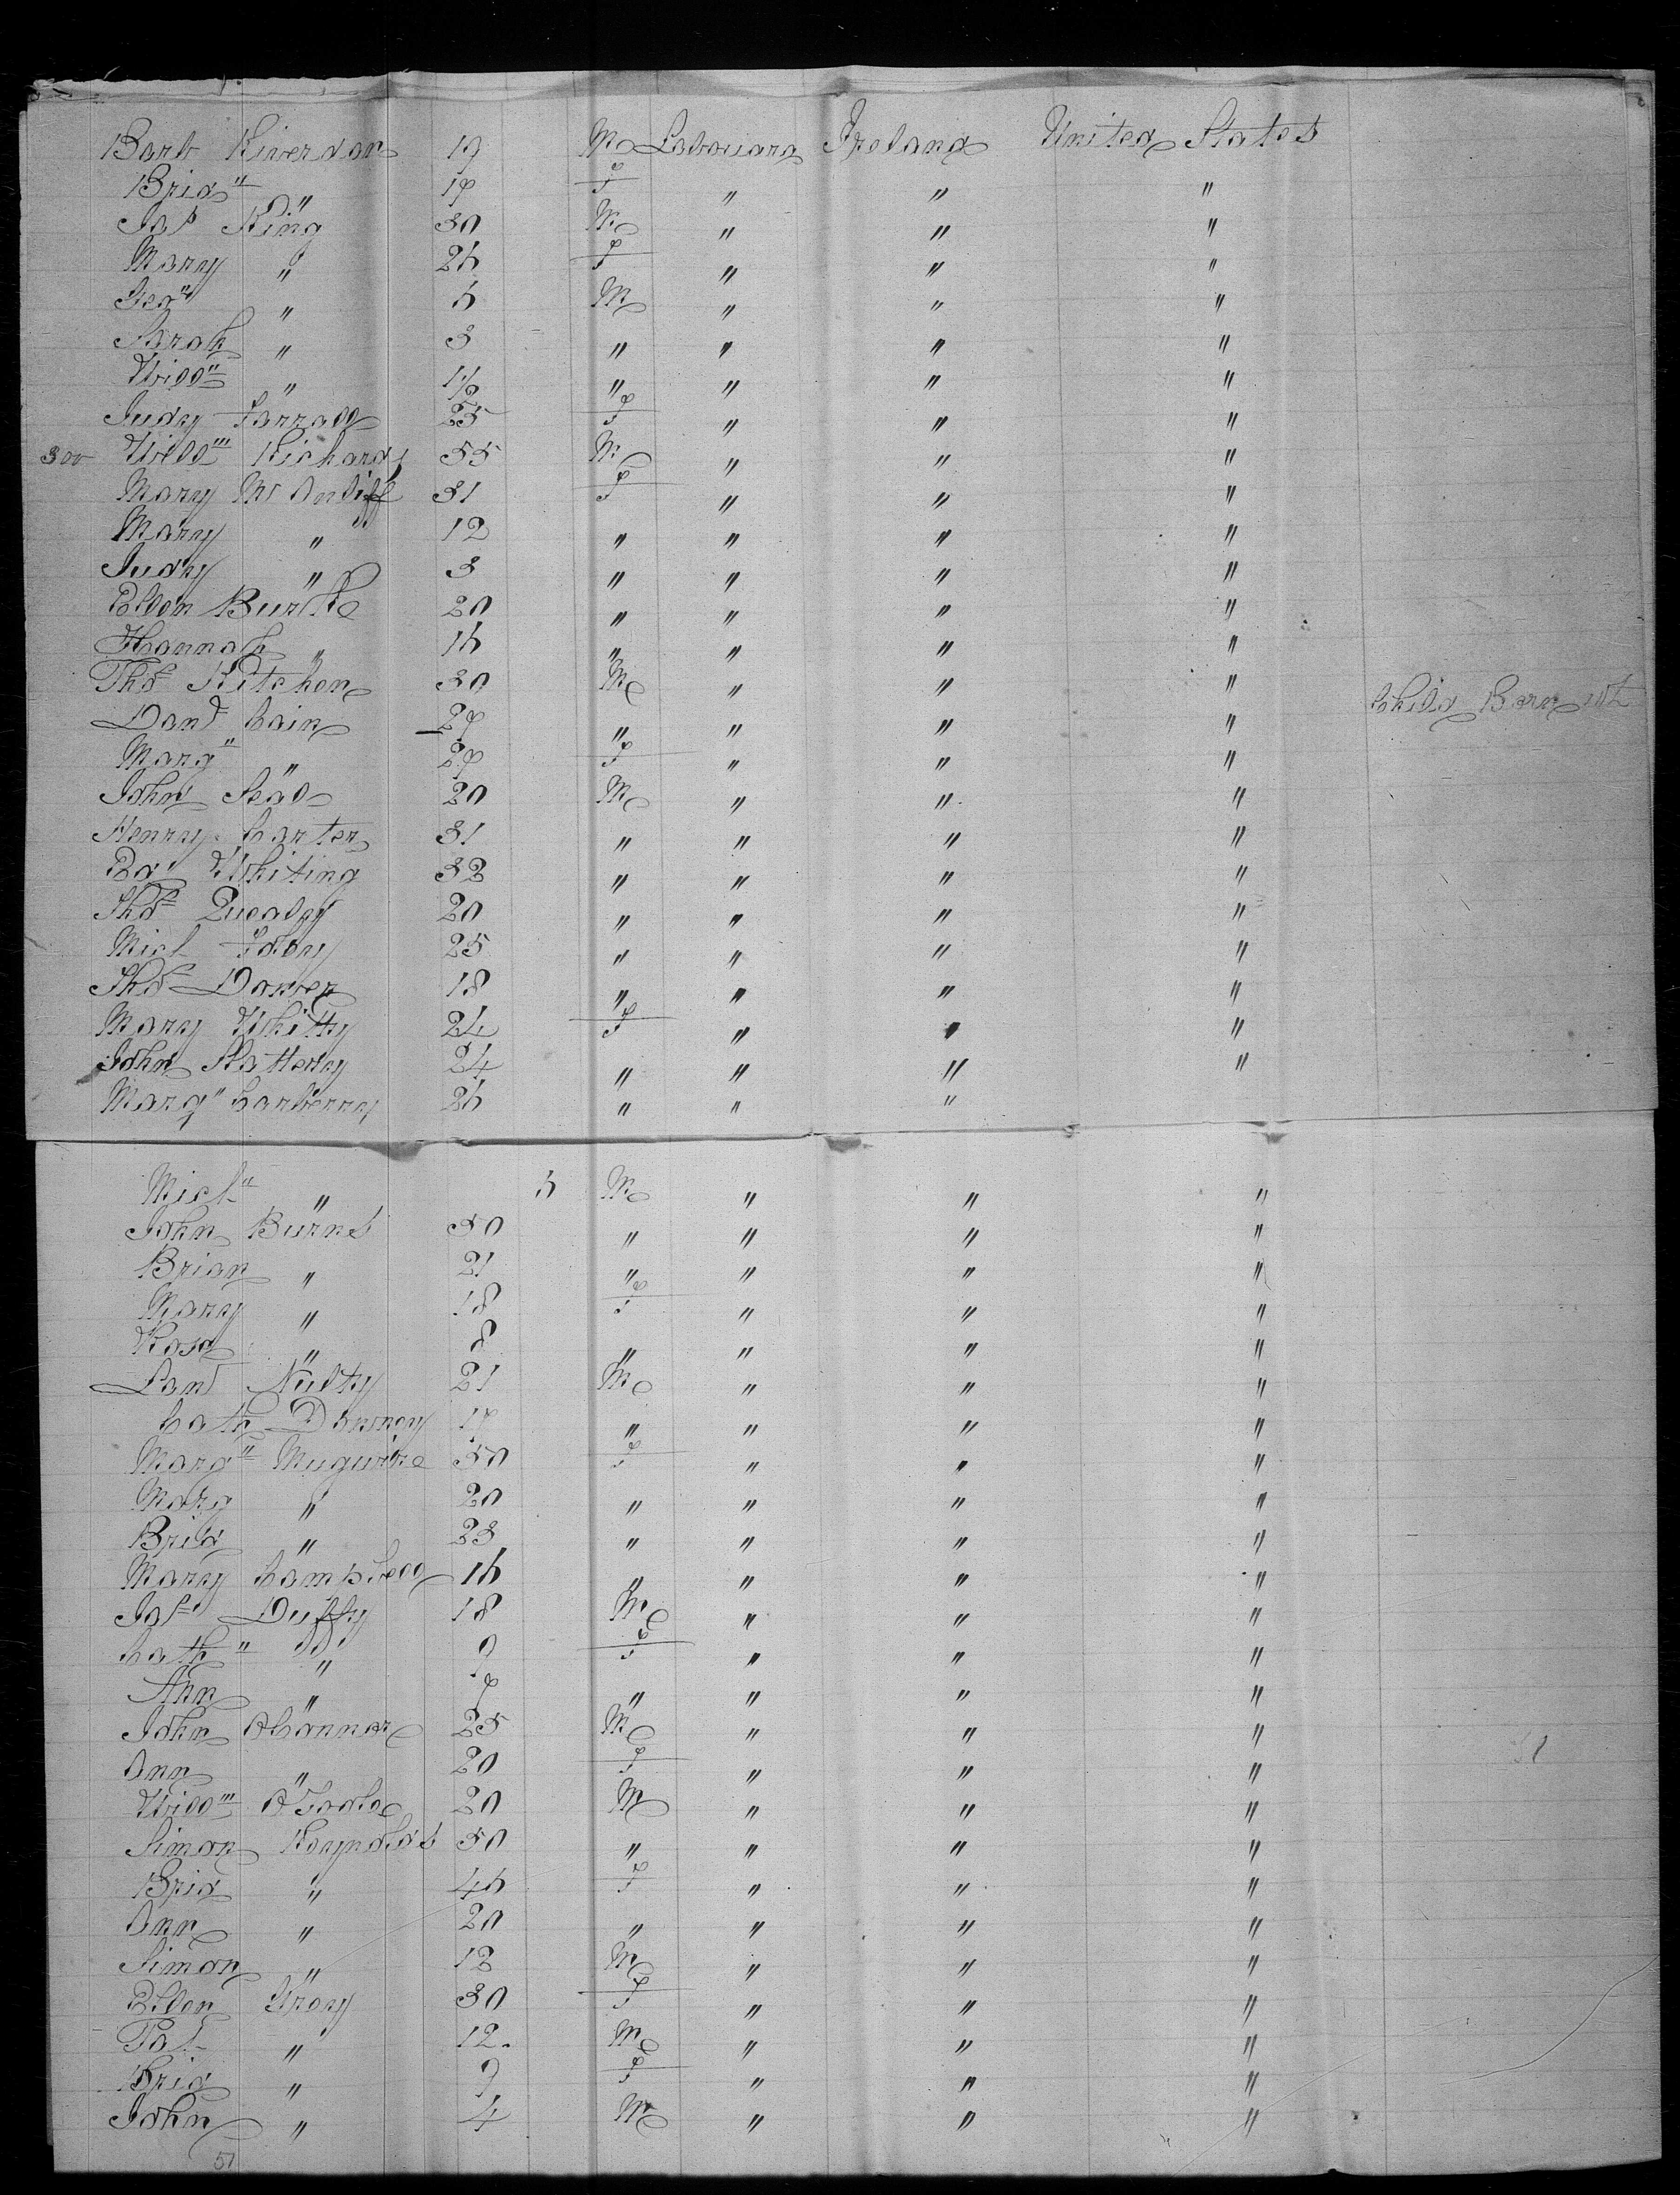 Barb Riverdan 19 M Labourars Ireland United States
Brid " " 19 F " " "
Jas King 30 M " " "
Mary " 26 F " " "
Geo " " 6 M " " "
Sarah " 3 " " " "
Will " " 1½ " " " "
Judy Farrall 25 F " " "
300 Willm Richards 55 M " " "
Mary McAuliff 31 F " " "
Mary " 12 " " " "
Judy " 3 " " " "
Ellen Burke 20 " " " "
Hannah " 16 " " " "
Thos Kitchen 30 M " " "
Danl Cain 29 " " " " Child Born
Marg " " 29 F " " "
John 20 M " " "
Henry Carter 31 " " " "
Ed Whiting 32 " " " "
Thos Quealy 20 " " " "
Micl Foley 25 " " " "
Thos 18 " " " "
Mary Whitty 24 F " " "
John Slattery 24 " " " "
Marg " Carberry 26 " " "
Micl " " 6 M " " "
John Burns 50 " " " "
Brian " 21 " " " "
Mary " 18 F " " "
Rosa " 8 " " " "
Nulty 21 M " " "
Cath 19 " " " "
Marg " Muguire 50 F " " "
Marg " 20 " " " "
Brid " 23 " " " "
Mary Campbell 16 " " " "
Jas Duffy 18 M " " "
Cath " " 9 F " " "
Ann " 9 " " " "
John OConnor 25 M " " "
Ann " 20 F " " "
Willm OToole 20 M " " "
Simon Reynolds 50 " " " "
Brid " 46 F " " "
Ann " 20 " " " "
Simon " 12 M " " "
Ellen 30 F " " "
Pat " 12 M " " "
Brid " 9 F " " "
John " 4 M " " "
51